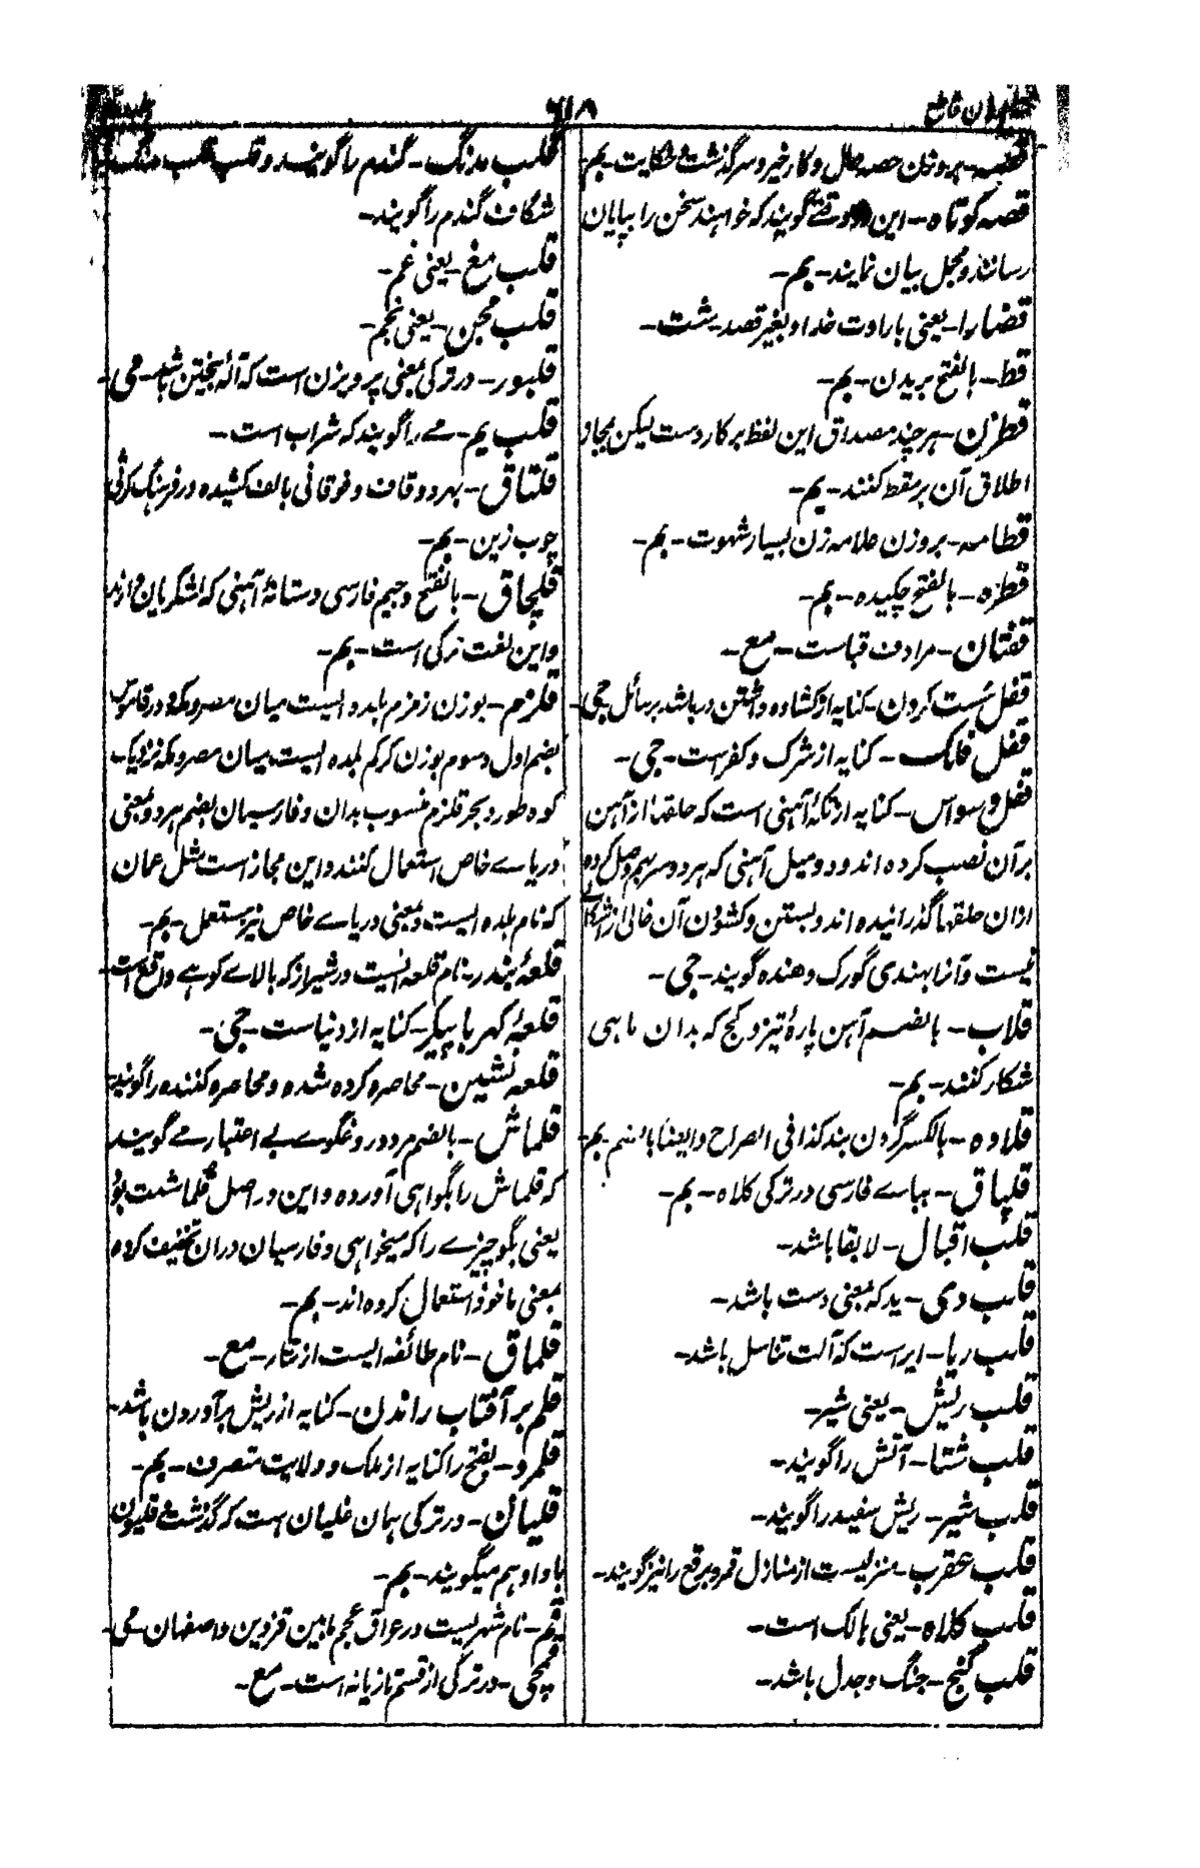 ۶۱۸
قصه - بروزن حصه حال و کار خیر و سرگذشت و حکایت - بم
قصه کوتاه - این وقتے گویند که خواهند سخن را بپایان
رسانند و مجمل بیان نمایند - بم -
قضارا - یعنی بارادت خدا و بغیر قصد -
قط - بالفتح بریدن - بم -
قطزن - هر چند مصداق این لفظ بر کاردست لیکن مجازا
اطلاق آن بر مقط کنند - بم -
قطامه - بروزن علامه زن بسیار شهوت - بم -
قطره - بالفتح چکیده - بم -
قفتان - مرادف قباست - مع -
قفل سست کردن - کنایه از کشاده داشتن در باشد بر سائل جی -
قفل فلک - کنایه از شرک و کفرست - جی -
قفل وسواس - کنایه از تکهٔ آهنی است که حلقها از آهن
بر آن نصب کرده اند و دو میل آهنی که هر دو سر بهم وصل کرده
ازان حلقها گذرانیده اند و بستن و کشودن آن خالی از اشکالے
نیست و آنرا بهندی گورک دهنده گویند - جی -
قلاب - بالضم آهن پارهٔ تیز و کج که بدان ماهی
شکار کنند - بم -
قلاده - بالکسر گردن بند کذا فی الصراح و ایضاً بالضم - بم -
قلپاق - بباے فارسی در ترکی کلاه - بم -
قلب اقبال - لابقا باشد -
قلب دی - ید که بمعنی دست باشد -
قلب ریا - ایر است که آلت تناسل باشد -
قلب ریش - یعنی شیر -
قلب شتا - آتش را گویند -
قلب شیر - ریش سفید را گویند -
قلب عقرب - منزلیست از منازل قمر و برقع را نیز گویند -
قلب کلاه - یعنی هالک است -
قلب گنج - جنگ و جدل باشد -
قلب مدنگ - گندم را گویند و قلب قلب
شکاف گندم را گویند -
قلب مغ - یعنی غم -
قلب مجن - یعنی نجم -
قلبور - در ترکی بمعنی پرویزن است که آلهٔ بیختن باشد - می -
قلب یم - مے را گویند که شراب است -
قلتاق - بهر دو قاف و فوقانی بالف کشیده در فرهنگ ترکی
چوب زین - بم -
قلچاق - بالفتح و جیم فارسی دستانهٔ آهنی که لشکریان دارند
و این لغت ترکی است - بم -
قلزم - بوزن زمزم بلده ایست میان مصر و مکه و در قاموس
بضم اول و سوم بوزن کرکم بلده ایست میان مصر و مکه نزدیک
کوه طور و بحر قلزم منسوب بدان و فارسیان بضم هر دو بمعنی
دریاے خاص استعمال کنند و این مجاز است مثل عمان
که نام بلده ایست و بمعنی دریاے خاص نیز مستعمل - بم -
قلعهٔ بندر - نام قلعه ایست در شیراز که بالاے کوهے واقع است
قلعهٔ کهربا پیکر - کنایه از دنیاست - جی -
قلعه نشین - محاصره کرده شده و محاصره کننده را گویند
قلماش - بالضم مرد دروغگوے بے اعتبار مے گویند
که قلماش را بگواهی آورده و این در اصل قلماشئت بود
یعنی بگو چیزے را که میخواهی و فارسیان دران تخفیف کرده
بمعنی ماخوذ استعمال کرده اند - بم -
قلماق - نام طائفه ایست از تتار - مع -
قلم بر آفتاب راندن - کنایه از ریش برآوردن باشد -
قلمرو - بفتح را کنایه از ملک و ولایت متصرف - بم -
قلیان - در ترکی همان غلیان است که گذشت و قلیون
با واو هم میگویند - بم -
قم - نام شهریست در عراق عجم مابین قزوین و اصفهان - می -
قمچی - در ترکی از قسم تازیانه است - مع -